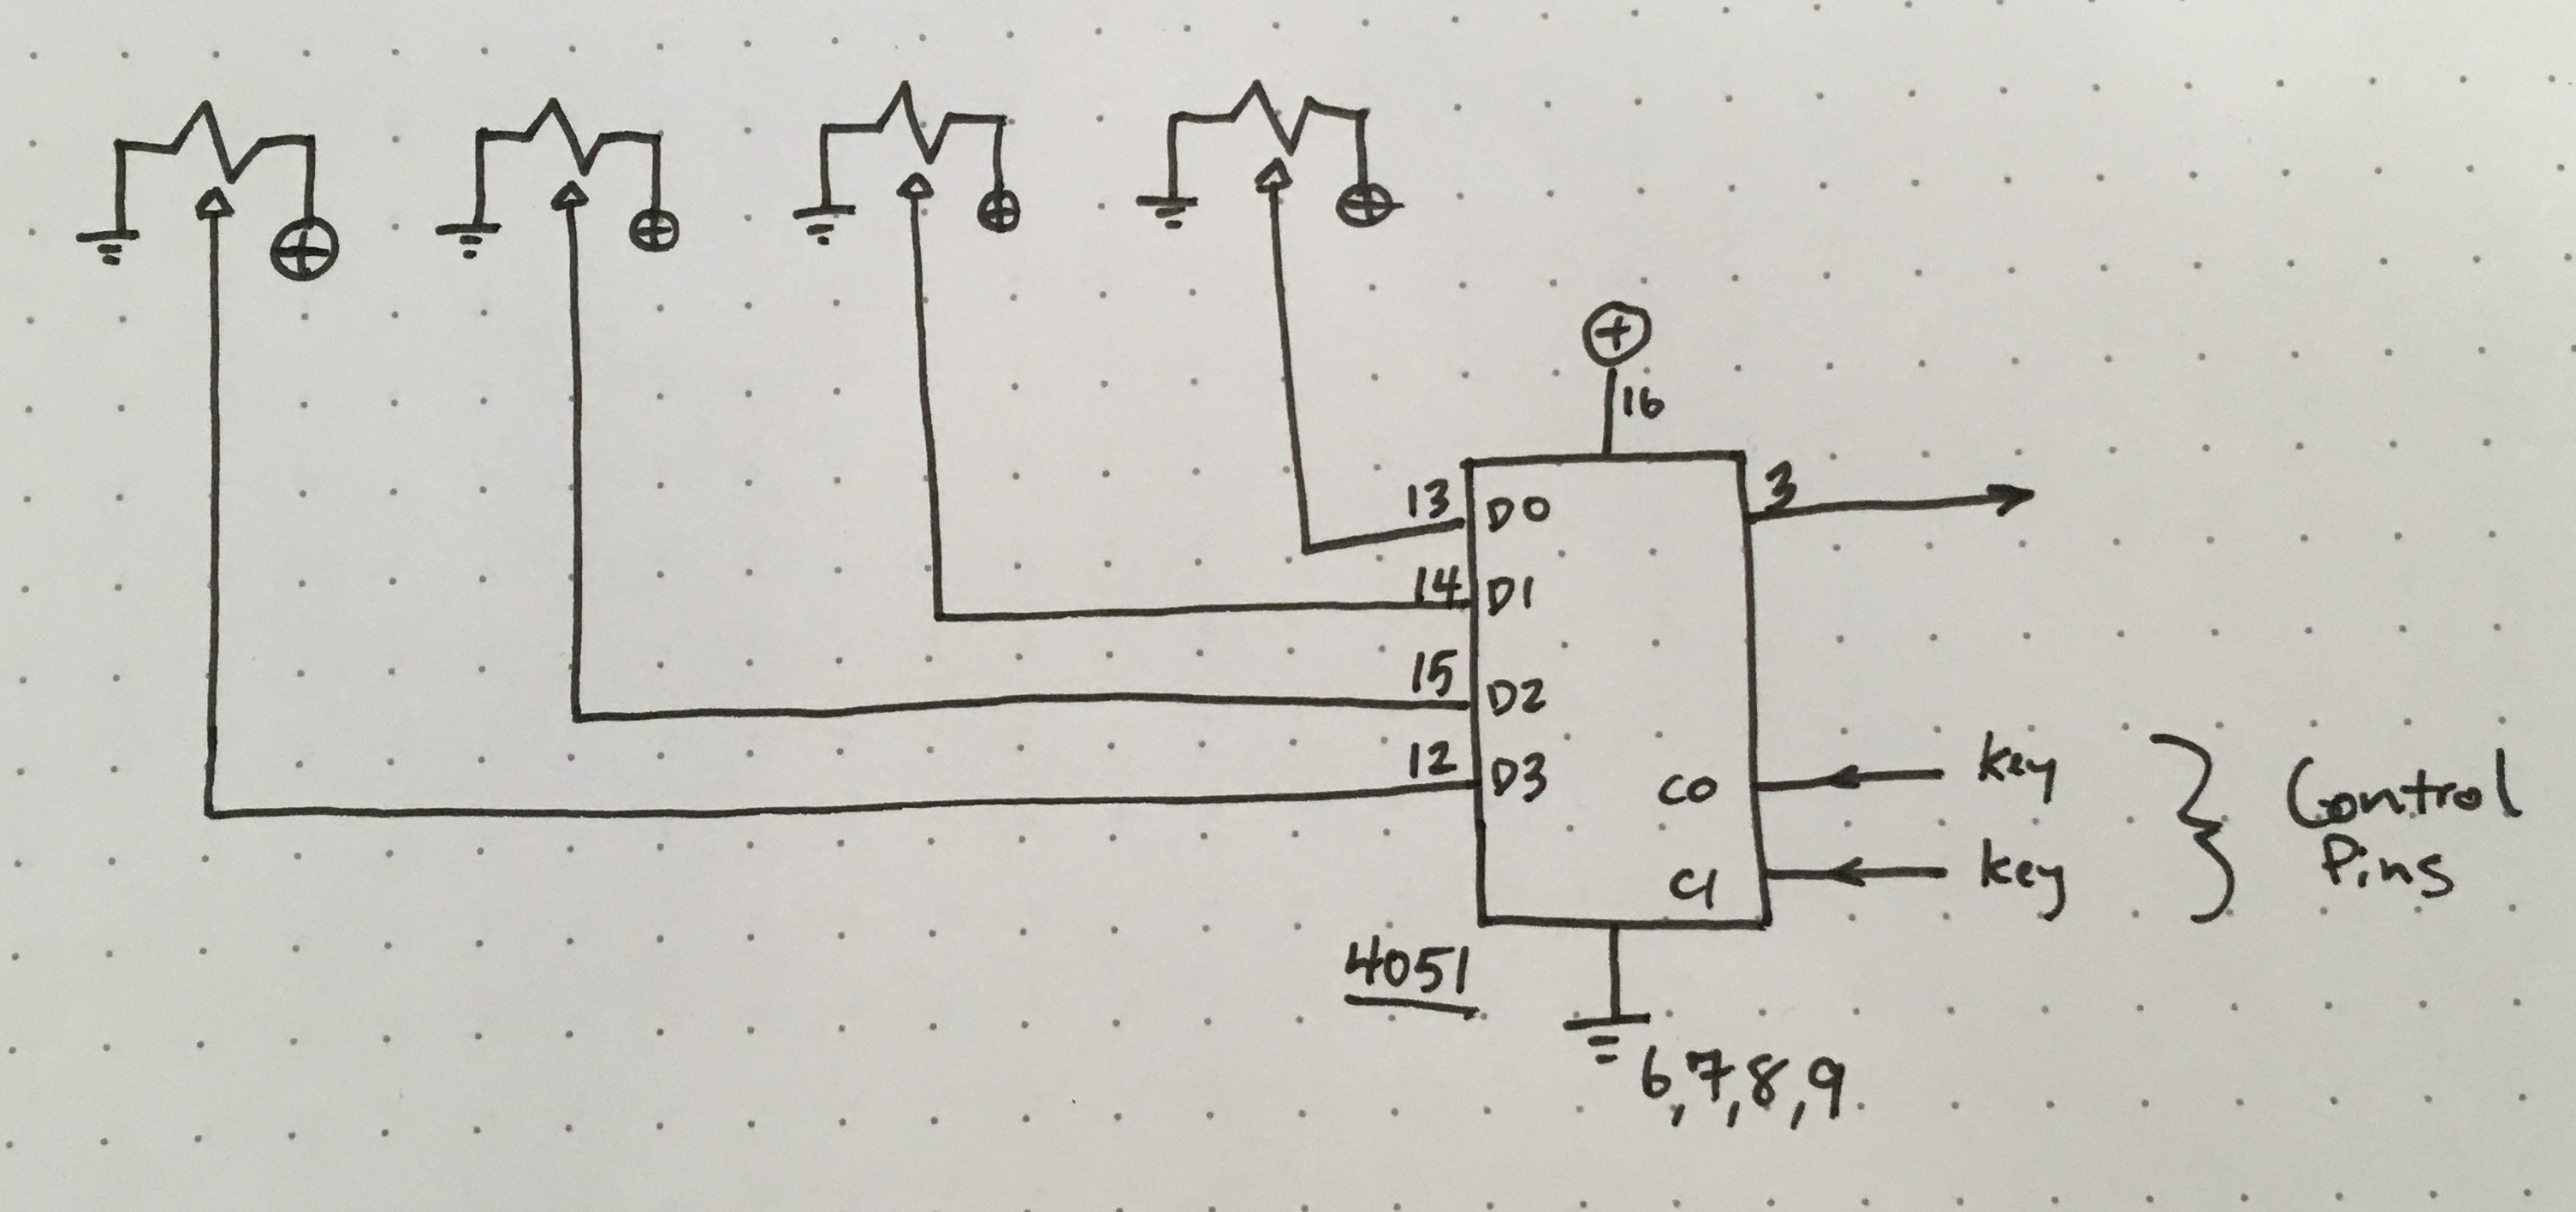 16
3
13 D0
14 D1
15 D2
12 D3
C0 key
C1 key
Control
Pins
4051
6,7,8,9